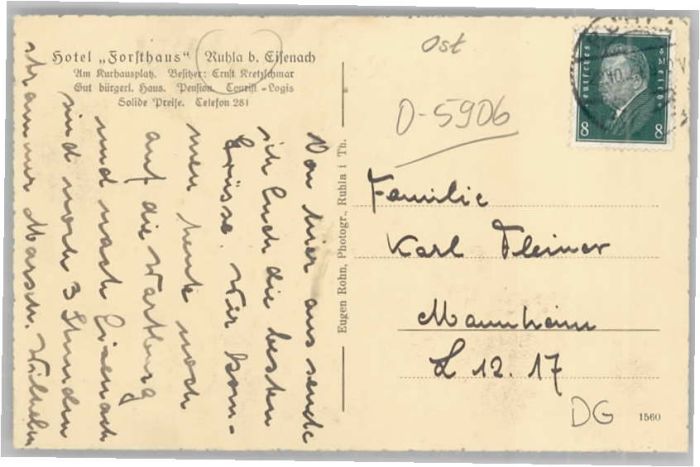 Hotel „Forsthaus" Ruhla b. Eisenach
Am Kurhausplatz. Besitzer: Ernst Kretzschmar
Gut bürgerl. Haus. Pension. Tourist-Logis
Solide Preise. Telefon 281
Von hier aus sende
ich Euch die besten
Grüsse. Wir kom-
men heute noch
auf die Wartburg
und nach Eisenach
sind noch 3 Stunden
strammer Marsch. Wilhelm
Eugen Rohn, Photogr., Ruhla i. Th.
Ost
O-5906
Deutsches Reich
8 8
Familie
Karl Fleiner
Mannheim
L 12. 17
DG
1560